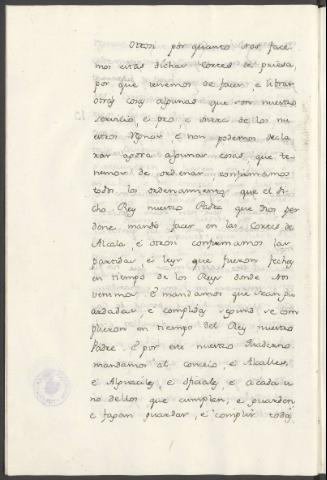 Otrosi por quanto Nos face
mos estas dichas Cortes de priesa,
por que tenemos de facer e librar
otras cosas algunas que son nuestro
servicio, e pro e onrra de los nu
estros Regnos e non podemos decla
rar agora algunas cosas, que te
nemos de ordenar, confirmamos
todos los ordenamientos que el di
cho Rey nuestro Padre que Dios per
done mandó facer en las Cortes de
Alcala, e otrosi confirmamos las
partidas e leyes que fueron fechas
en tiempo de los Reyes donde Nos
venimos. E mandamos que sean gu
ardadas e complidas segund se com
plieron en tiempo del Rey nuestro
Padre. E por este nuestro Quaderno
mandamos al concejo, e Alcalles,
e Alguaciles, e oficiales, e a cada u
no dellos que cumplan, e guarden,
e fagan guardar, e complir todas